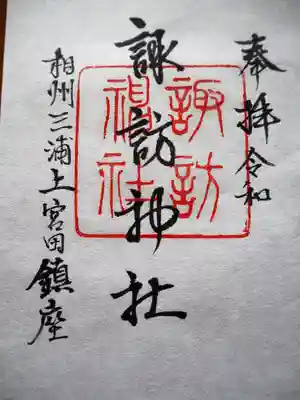 奉拝令和
諏訪神社
諏訪
神社
相州三浦上宮田鎮座